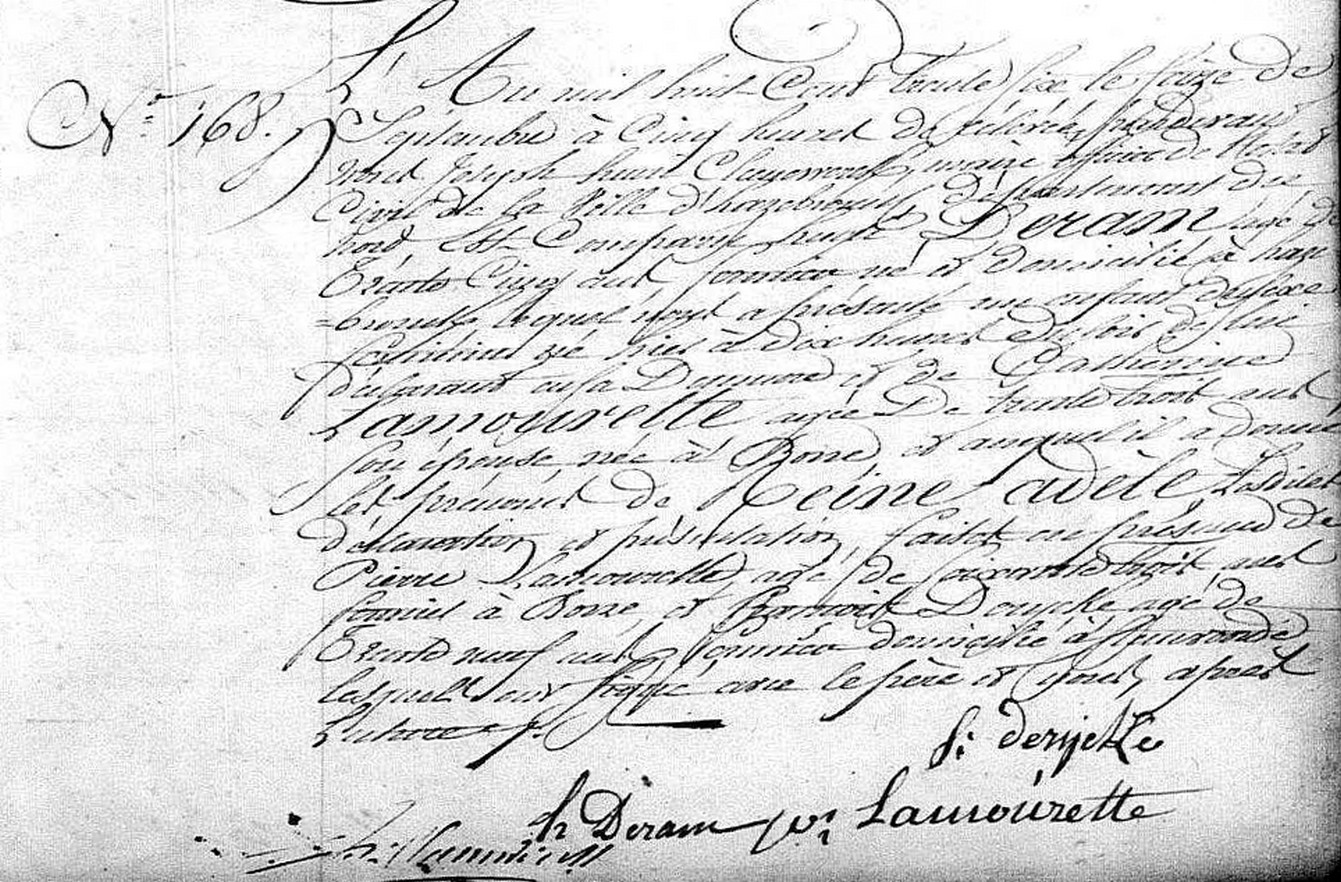 N.º 168.
L'An mil huit Cent trente six le seize de
Septembre à Cinq heures de relevée, pardevant
nous Joseph henri maire officier de l'état
Civil de la Ville d'hazebrouck département du
nord Est Comparu De Ram agé de
trente Cinq ans fermier né et domicilié à haze
=brouck lequel nous a présenté un enfant de sexe
féminin né hier à dix heures du soir de lui
déclarant en sa Demeure et de Catherine
Lamourette agée De trente trois ans
son épouse née à Borre et auquel il a donné
les prénoms de Reine adèle, Lesdites
déclaration et présentation, faites en présence de
Pierre Lamourette, agé de soixante trois ans
fermier à Borre, et François Derycke agé de
trente neuf ans fermier domicilié à
lesquels ont signé avec le père et Nous, après
Lecture
f: derycke
h Deram Lamourette